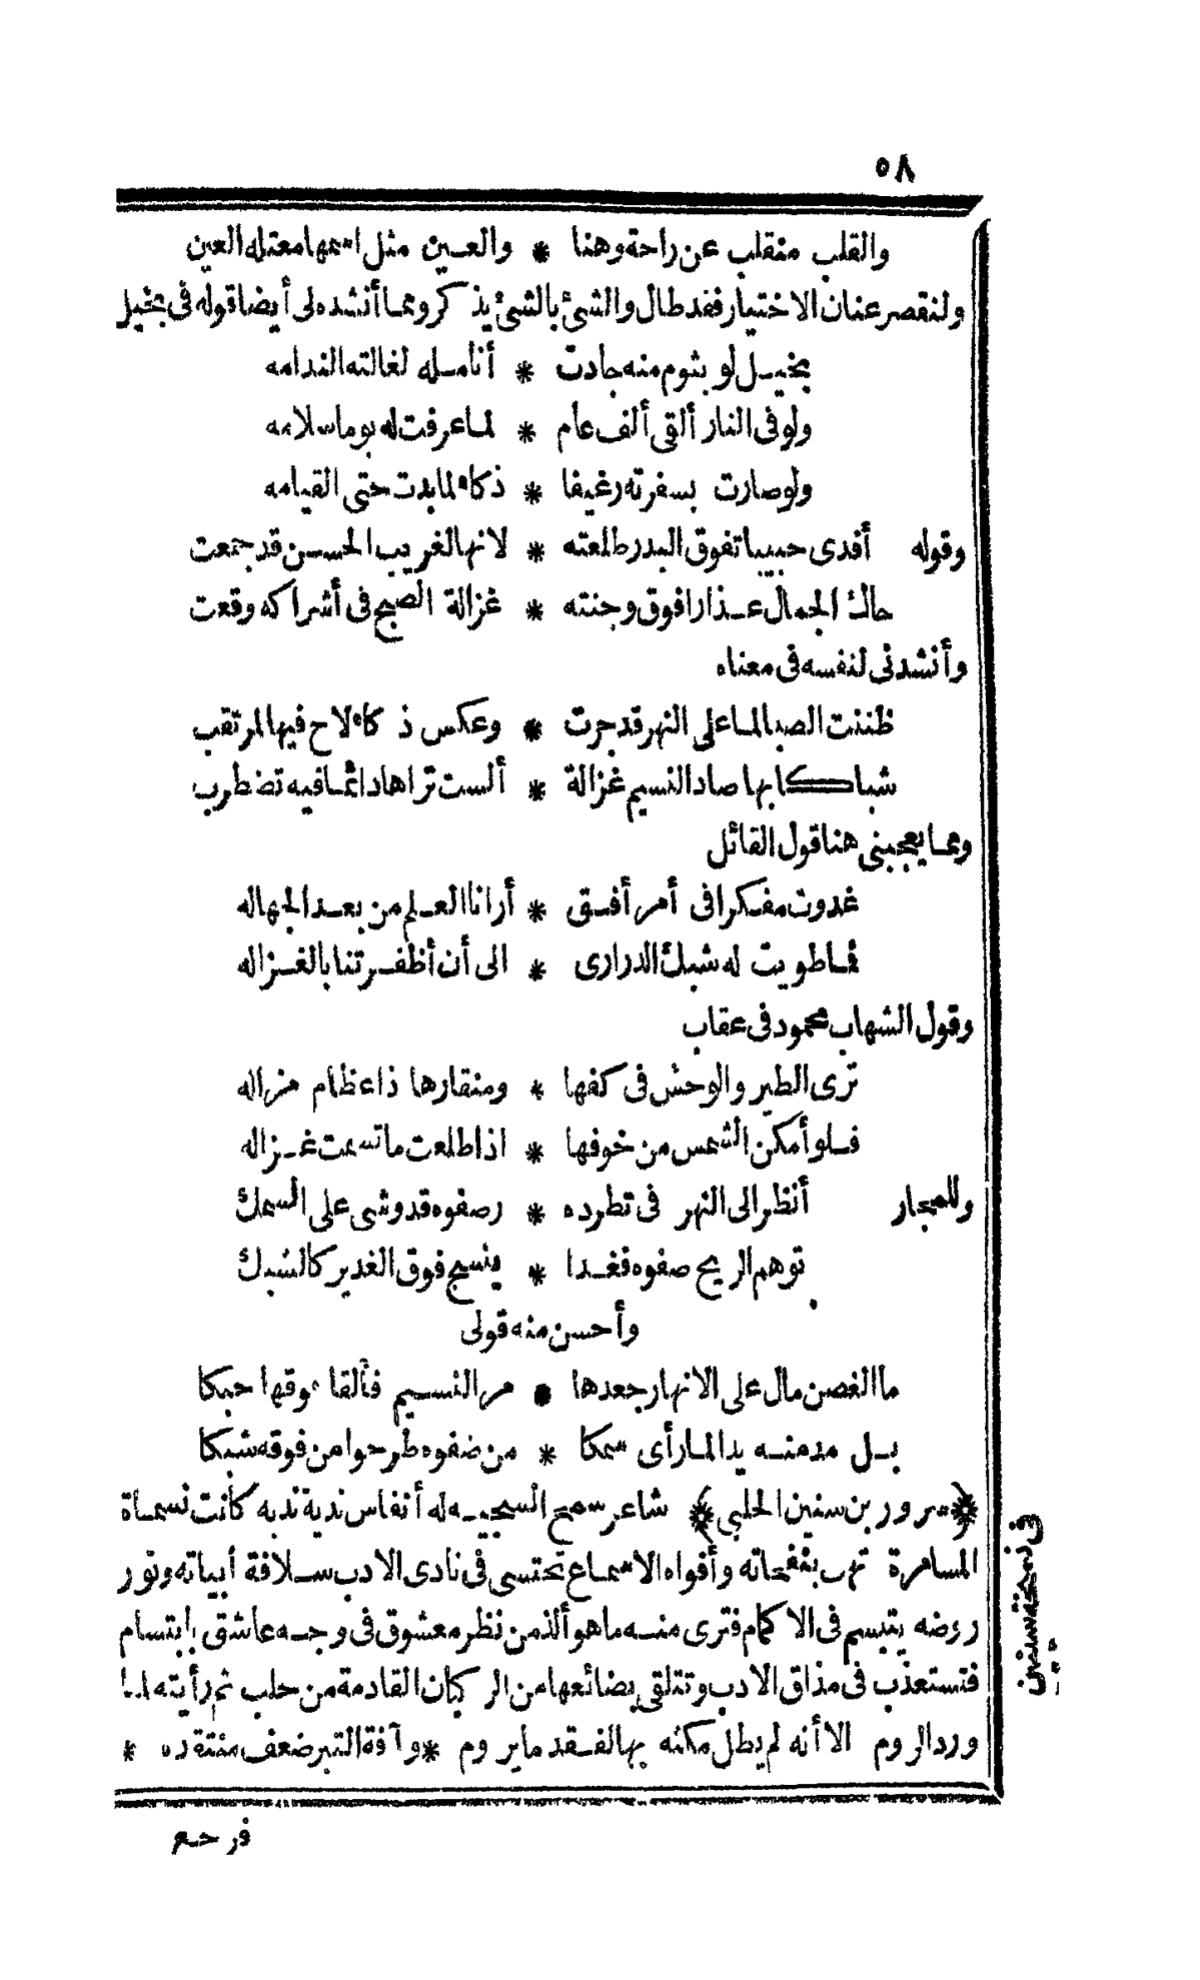 ٥٨
والقلب منقلب عن راحة وهنا * والعين مثل اسمها معتله العين
ولنقصر عنان الاختيار فقد طال والشئ بالشئ يذكر ومما أنشده لى أيضا قوله فى بخيل
بخيل لو بثوم منه جادت * أنامله لغالته الندامه
ولو فى النار ألقى ألف عام * لما عرفت له يوما سلامه
ولو صارت بسفرته رغيفا * ذكاء لما بدت حتى القيامه
وقوله أفدى حبيبا تفوق البدر طلعته * لانها لغريب الحسن قد جمعت
حاك الجمال عذارا فوق وجنته * غزالة الصبح فى أشراكه وقعت
وأنشدنى لنفسه فى معناه
ظننت الصبا لما على النهر قد جرت * وعكس ذكاء لاح فيها لمرتقب
شباكا بها صاد النسيم غزالة * ألست تراها دائما فيه تضطرب
ومما يعجبنى هنا قول القائل
غدوت مفكرا فى أمر أفق * أرانا العلم من بعد الجهاله
فما طويت له شبك الدرارى * الى أن أظفرتنا بالغزاله
وقول الشهاب محمود فى عقاب
ترى الطير والوحش فى كفها * ومنقارها ذا عظام مزاله
فلو أمكن الشمس من خوفها * اذا طلعت ما تسمت غزاله
وللمجار أنظر الى النهر فى تطرده * وصفوه قد وشى على السمك
توهم الريح صفوه فغدا * ينسج فوق الغدير كالشبك
وأحسن منه قولى
ما الغصن مال على الانهار جعدها * مر النسيم فألقا فوقها حبكا
بل مد منه يدا لما رأى سمكا * من ضفوه طرحوا من فوقه شبكا
﴿سرور بن سنين الحلبى﴾ شاعر سمح السجيه له أنفاس ندية ندبه كانت نسماة
المسامرة تهب بنفحاته وأفواه الاسماع تحتسى فى نادى الادب سلافة أبياته ونور
روضه يتبسم فى الاكمام فترى منه ما هو ألذ من نظر معشوق فى وجه عاشق بابتسام
فتستعذب فى مذاق الادب وتتلقى بضائعها من الركبان القادمة من حلب ثم رأيته لما
ورد الروم الا أنه لم يطل مكثه بها لفقد ما يروم * وآفة التبر ضعف منتقده *
فى نسخة سنين
فرحم